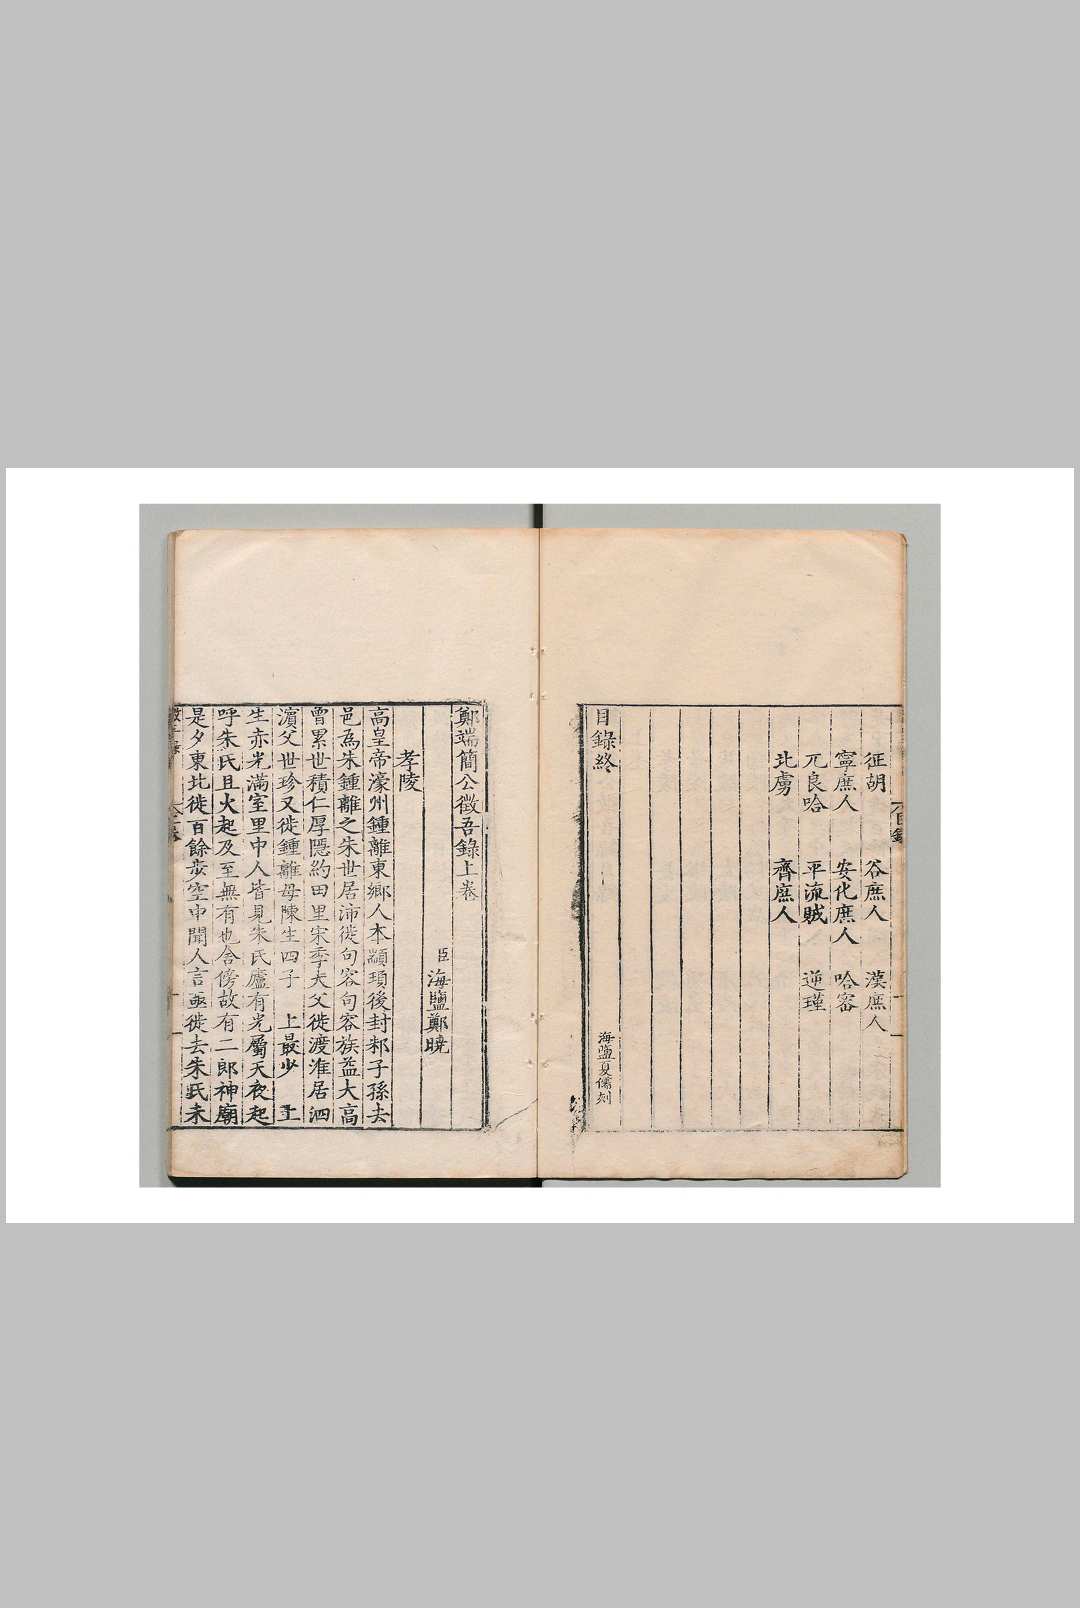 征胡　谷庶人　漢庶人
寧庶人　安化庶人　哈密
兀良哈　平流賊　逆瑾
北虜　齊庶人
目錄終　海鹽夏儒刻
鄭端簡公徵吾錄上卷
臣海鹽鄭曉
孝陵
高皇帝濠州鍾離東鄉人本顓頊後封邾子孫去
邑為朱鍾離之朱世居沛徙句容句容族益大高
曾累世積仁厚隱約田里宋季大父徙渡淮居泗
濵父世珍又徙鍾離母陳生四子　上最少　上
生亦光滿室里中人皆見朱氏廬有光屬天夜起
呼朱氏且火起及至無有也舍傍故有二郎神廟
是夕東北徙百餘步空中聞人言亟徙去朱氏未
目錄